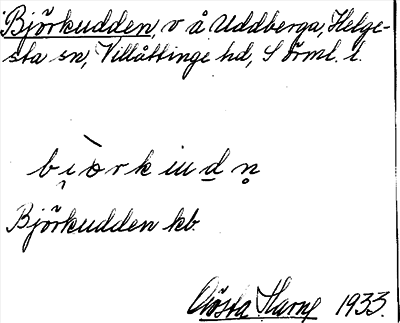 Björkudden, v å Uddberga, Helge-
sta sn, Villåttinge hd, Sörml. l.
Björkudden kb.
Gösta 1933.